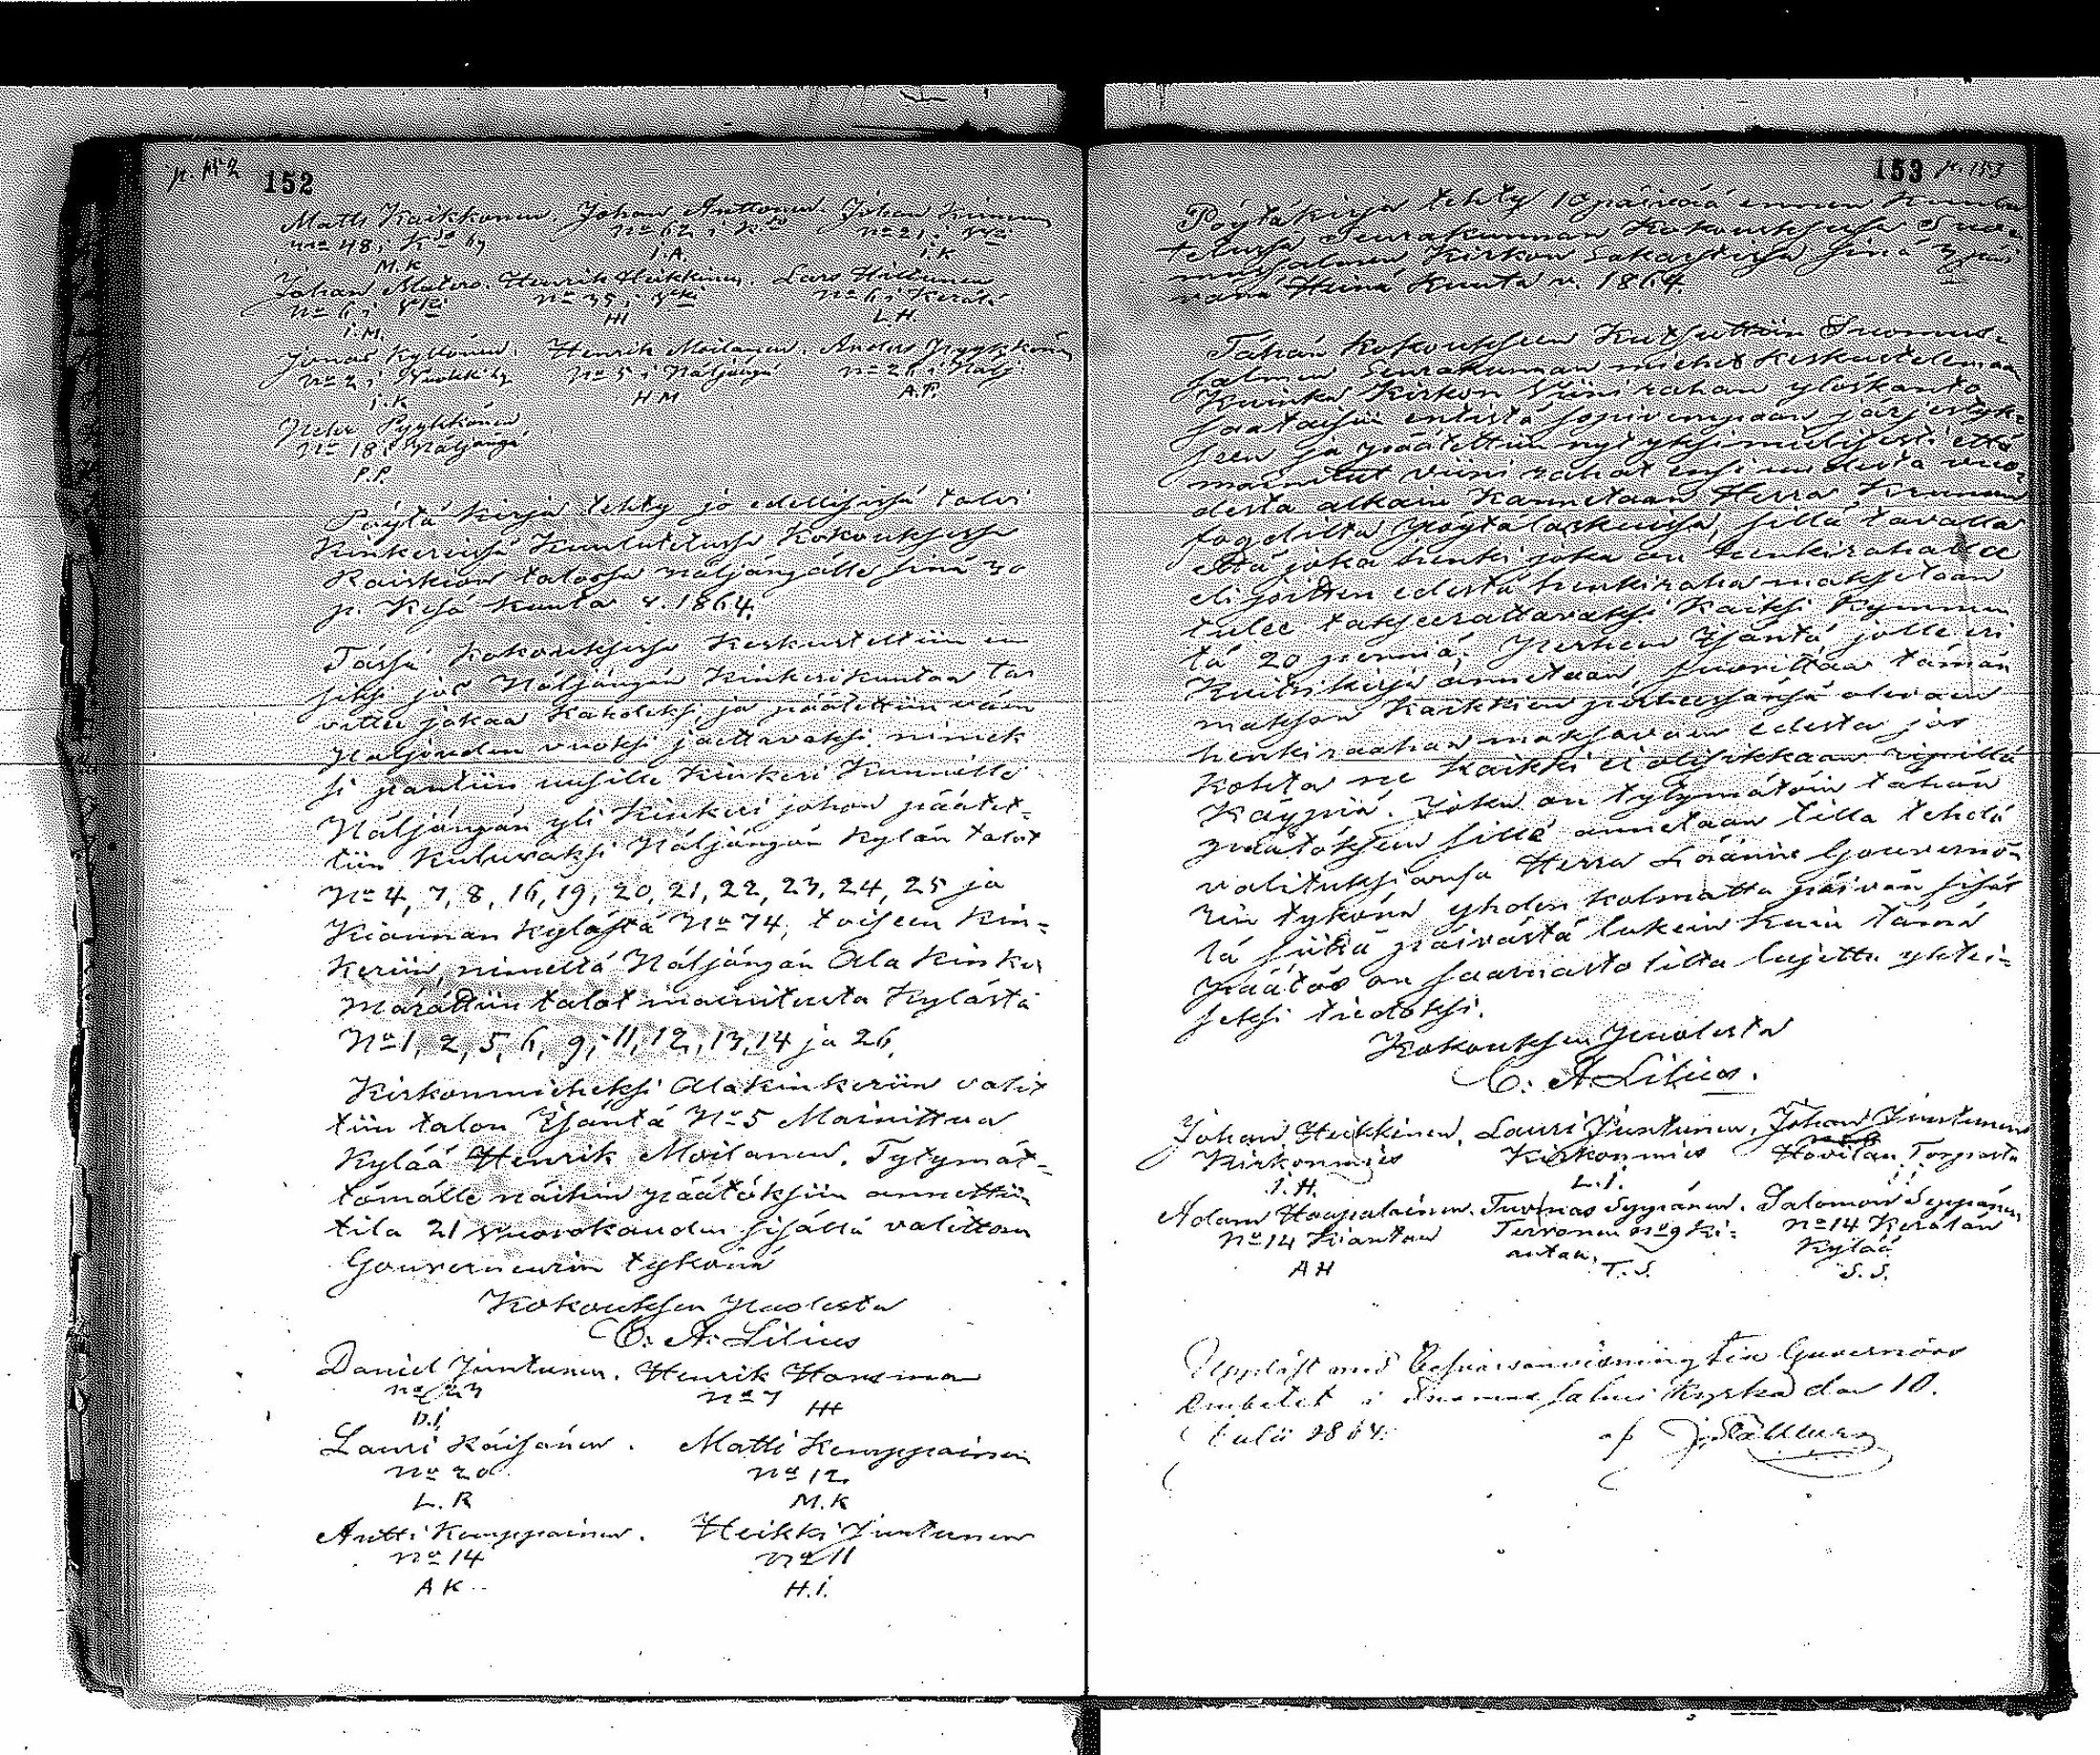 p. 152
152
Matts Kaikkonen. Johan Anttonen. Johan Kinnunen
No 48 i K:do by No 62 i K:do No 21 i
M.K I.A. I.K
Johan Matero. Henrik Heikkinen. Lars Hiltunen
No 6 i No 35 i No 6 i Kerälä
I.M. HH L.H.
Jonas Kyllönen. Henrik Moilanen. Anders Pyykkönen
No 2 i No 5 i Näljängä No 26 i Nälj.
I.K H M A.P.
Peter Pyykkönen
No 18 i Näljängä
P.P.
Pöytä kirja tehty jo edellisissä talvi
Kinkereissä Kuulutetussa Kokouksessa
Raiskion talossa Näljängällä sinä 30
p. Kesä Kuuta v. 1864.
Tässä Kokouksessa Keskusteltiin en
siksi jos Näljängän Kinkerikuntaa tar
vittee jakaa Kahdeksi, ja päätettiin väen
Paljouden vuoksi jaettavaksi, nimek
si pantiin uusille Kinkeri Kunnille
Näljängän yli Kinkeri johon päätet-
tiin Kuluvaksi Näljängän Kylän talot
No 4, 7, 8, 16, 19, 20, 21, 22, 23, 24, 25 ja
Kiannan Kylästä No 74, toiseen Kin-
keriin, nimeltä Näljängän Ala Kinkeri
Määrättiin talot mainitusta Kylästä
No 1, 2, 5, 6, 9, 11, 12, 13, 14 ja 26.
Kirkonmieheksi Alakinkeriin valit
tiin talon Isäntä No 5 Mainittua
Kylää Henrik Moilanen. Tytymät-
tömälle näihin päätöksiin annettiin
tila 21 vuorokauden sisällä valittaa
Gouverneurin tykönä
Kokouksen Puolesta
C. A. Lilius
Daniel Juntunen. Henrik Hansman
No 23 No 7
D.I. HH
Lauri Räisänen. Matti Kemppainen
No 20 No 12
L.R M.K
Antti Kemppainen. Heikki Juntunen
No 14 No 11
A K H.I.
153 p. 153
Pöytäkirja tehty 10 päivää ennen Kuulu
telussa Seurakunnan Kokouksessa Suo-
mussalmen Kirkon Sakastissa sinä 3 päi
vänä Heinä Kuuta v. 1864.
Tähän Kokoukseen Kutsuttiin Suomus-
salmen Seurakunnan miehet Keskustelemaan
Kuinka Kirkon Viini rahan yloskanto
saataisiin entistä sopivempaan järjestyk-
seen ja päätettiin nyt yksimielisesti että
mainitut viini rahat ensi uudesta vuo-
desta alkain Kannetaan Herra Kruunun
fogdilta Pöytäläskuissa, sillä tavalla
että joka henki joka on henkirahalla
eli joitten edestä henkiraha maksetaan
tulee takseerattavaksi Kaikki Kymmen
tä 20 penniä; Perheen Isäntä jolle eri
Kuitikirja annetaan, suorittaa tämän
makson Kaikkien perheessänsä olevaen
henkirahan maksavaen edestä jos
Kohta ne Kaikki ei olisikkaan ripillä
Käypiä. Joka on tytymätöin tähän
päätöksen sille annetaan tilla tehdä
valituksiansa Herra Läänin Gouvernö-
rin tykönä yhden kolmatta päivän sisäl
lä siitä päivästä lukein kuin tämä
päätös on saarnastolilta luettu yhtei-
seksi tiedoksi.
Kokouksen Puolesta
C. A Lilius.
Johan Heikkinen, Lauri Juntunen, Johan Juntunen
Kirkonmies Kirkonmies Hovilan Torpasta
J.H. L.I.
Adam Haapalainen. Tuomas Seppänen. Salomon Seppänen
No 14 Kiantaa Tervonen No 9 Ki- No 14 Kerälän
antaa. Kylää
A H T.S. S.S.
Uppläst med besvärsanvisning Guvernörs
Embetet i Suomussalmi Kyrka den 10.
Julii 1864. af